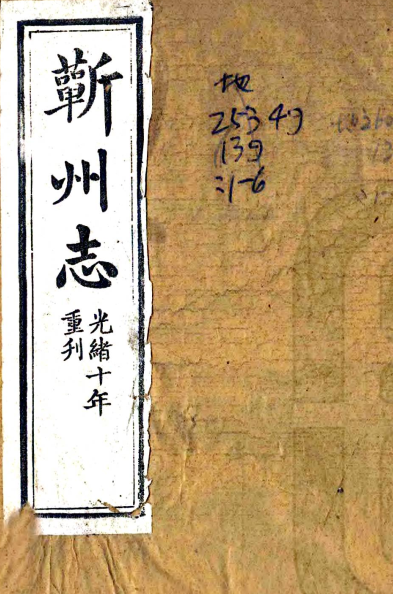 蘄州志
光緒十年
重刋
地
253.49
139
:1-6